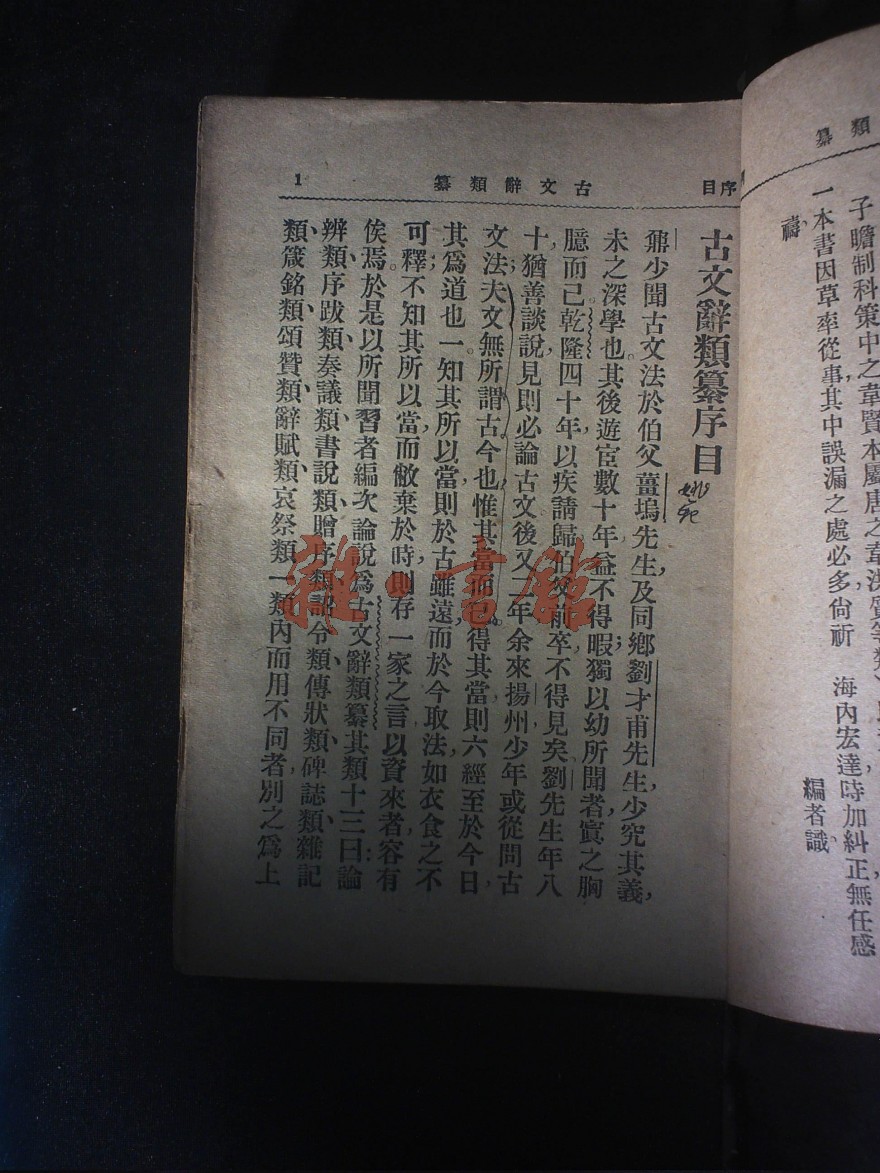 纂類
子瞻制科策中之韋賢本屬唐之韋決質等類
一本書因草率從事其中誤漏之處必多尙祈　海內宏達時加糾正無任感
禱
編者識
序目　古文辭類纂　1
古文辭類纂序目
鼐少聞古文法於伯父薑塢先生，及同鄕劉才甫先生，少究其義，
未之深學也。其後遊宦數十年，益不得暇；獨以幼所聞者，寘之胸
臆而已。乾隆四十年，以疾請歸，伯父前卒，不得見矣。劉先生年八
十，猶善談說，見則必論古文。後又二年，余來揚州，少年或從問古
文法。夫文無所謂古今也，惟其當而已。得其當，則六經至於今日，
其爲道也一。知其所以當，則於古雖遠，而於今取法，如衣食之不
可釋；不知其所以當，而敝棄於時，則存一家之言，以資來者，容有
俟焉。於是以所聞習者，編次論說爲古文辭類纂。其類十三，曰：論
辨類、序跋類、奏議類、書說類、贈序類、詔令類、傳狀類、碑誌類、雜記
類、箴銘類、頌贊類、辭賦類、哀祭類。一類內而用不同者，別之爲上
雜·書館